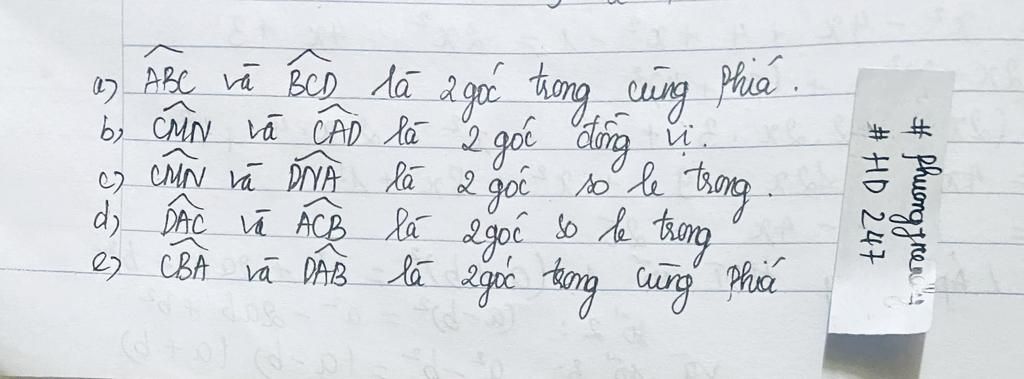 a) ABC và BCD là 2 góc trong cùng phía.
b) CMN và CAD là 2 góc đồng vị.
c) CMN và DNA là 2 góc so le trong.
d) DAC và ACB là 2 góc so le trong
e) CBA và DAB là 2 góc trong cùng phía
# HD 247